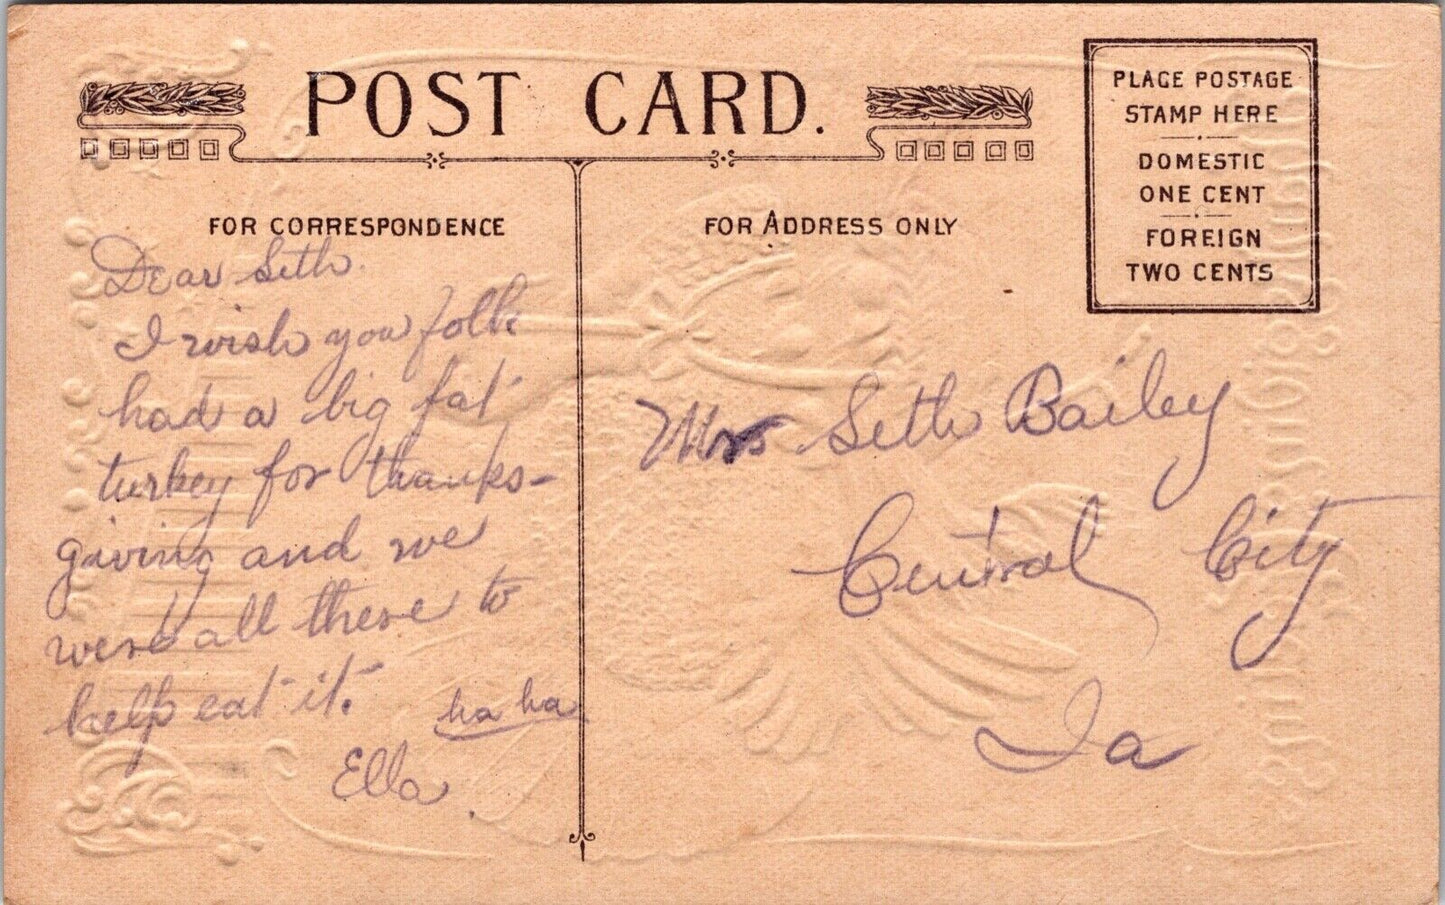 POST CARD.
PLACE POSTAGE
STAMP HERE
DOMESTIC
ONE CENT
FOREIGN
TWO CENTS
FOR CORRESPONDENCE
FOR ADDRESS ONLY
Dear Seth.
I wish you folks
had a big fat
turkey for thanks-
giving and we
were all there to
help eat it.
ha ha
Ella.
Mrs Seth Bailey
Central City
Ia